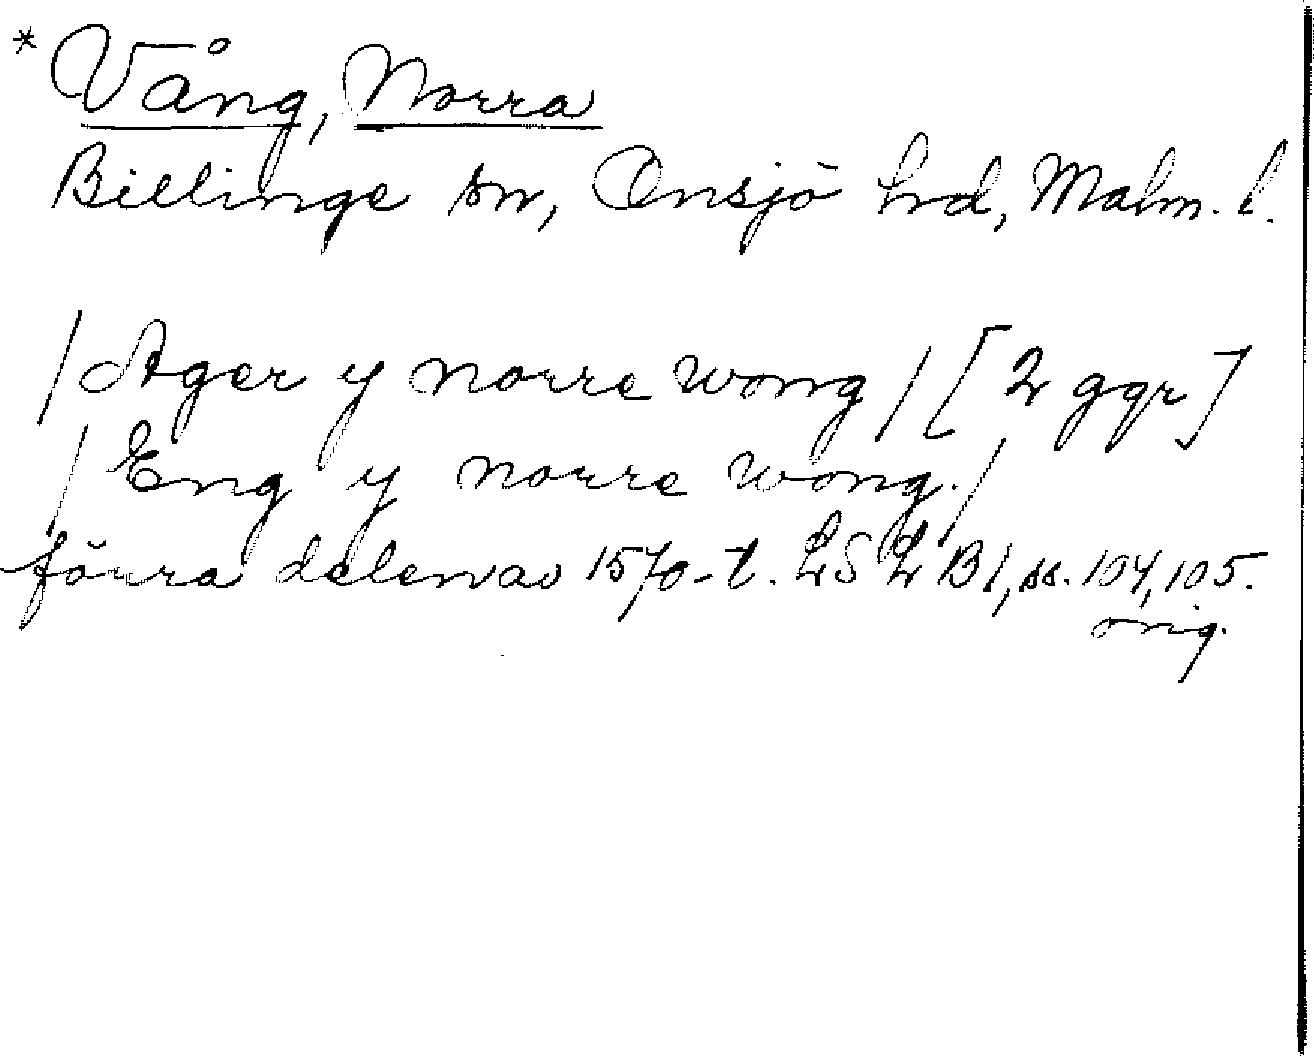 * Vång, Norra
Billinge sn, Onsjö hrd, Malm. l.
/Ager y norre wong/ [2 ggr]
/Eng y norre wong./
förra delen av 1570-t. LSLB1, ss. 104, 105.
orig.